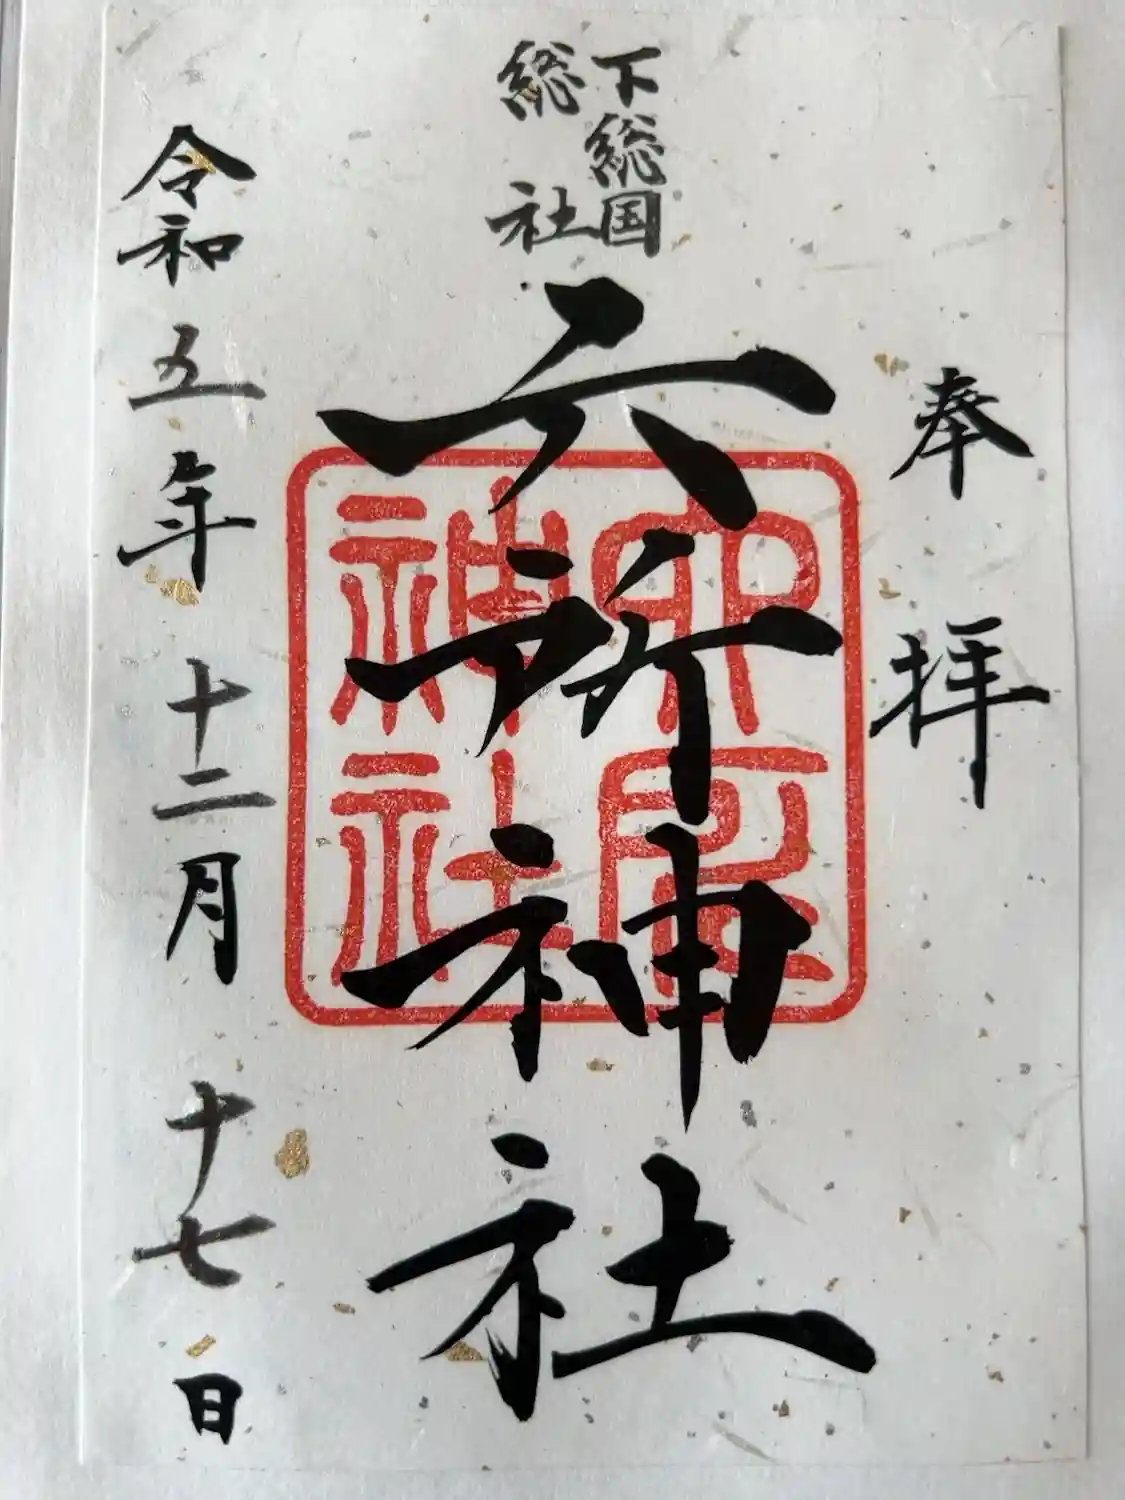 奉拝
下総国
総社
六所神社
六所神社
令和五年十二月十七日